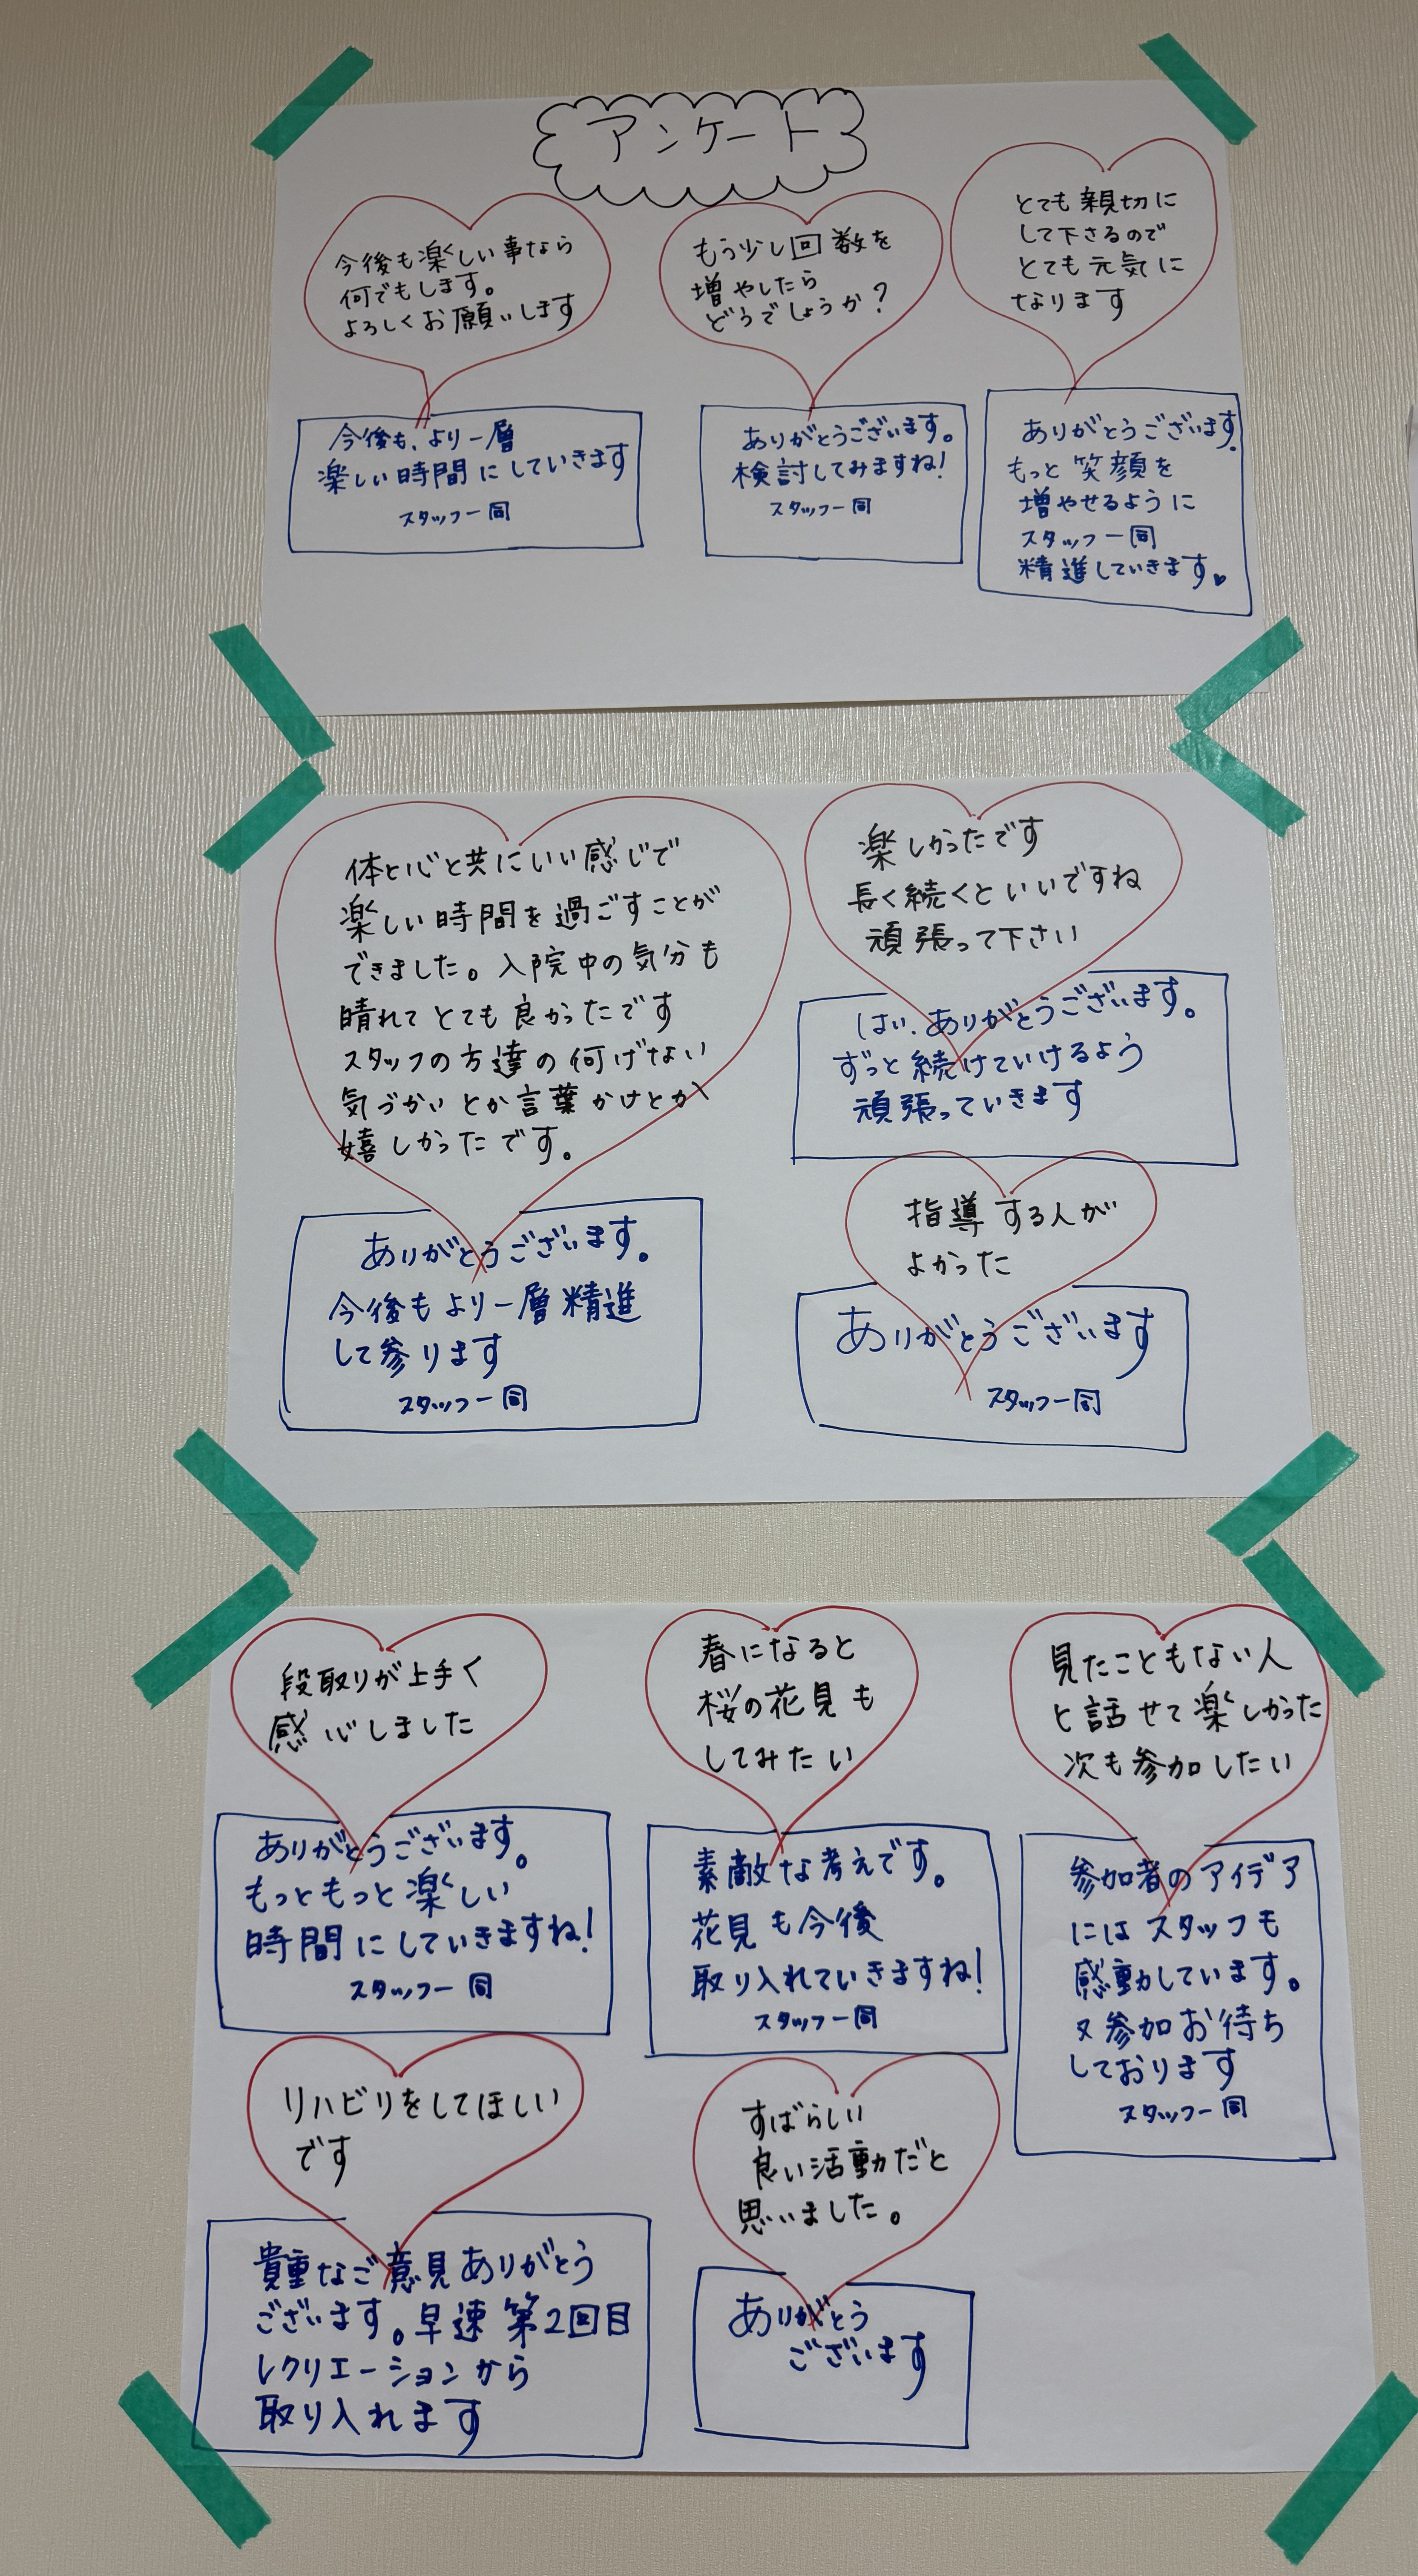 アンケート
今後も楽しい事なら
何でもします。
よろしくお願いします
今後も、より一層
楽しい時間にしていきます
スタッフ一同
もう少し回数を
増やしたら
どうでしょうか?
ありがとうございます。
検討してみますね!
スタッフ一同
とても親切に
して下さるので
とても元気に
なります
ありがとうございます。
もっと笑顔を
増やせるように
スタッフ一同
精進していきます♥
体と心と共にいい感じで
楽しい時間を過ごすことが
できました。入院中の気分も
晴れてとても良かったです
スタッフの方達の何げない
気づかいとか言葉かけとか
嬉しかったです。
ありがとうございます。
今後もより一層精進
して参ります
スタッフ一同
楽しかったです
長く続くといいですね
頑張って下さい
はい、ありがとうございます。
ずっと続けていけるよう
頑張っていきます
指導する人が
よかった
ありがとうございます
スタッフ一同
段取りが上手く
感心しました
ありがとうございます。
もっともっと楽しい
時間にしていきますね!
スタッフ一同
春になると
桜の花見も
してみたい
素敵な考えです。
花見も今後
取り入れていきますね!
スタッフ一同
見たこともない人
と話せて楽しかった
次も参加したい
参加者のアイデア
にはスタッフも
感動しています。
又参加お待ち
しております
スタッフ一同
リハビリをしてほしい
です
貴重なご意見ありがとう
ございます。早速第2回目
レクリエーションから
取り入れます
すばらしい
良い活動だと
思いました。
ありがとう
ございます